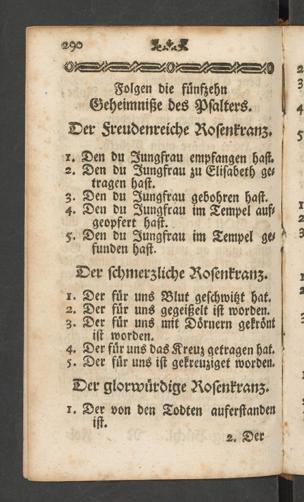 290
Folgen die fünfzehn
Geheimniße des Psalters.
Der Freudenreiche Rosenkranz.
1. Den du Jungfrau empfangen hast.
2. Den du Jungfrau zu Elisabeth ge-
tragen hast.
3. Den du Jungfrau gebohren hast.
4. Den du Jungfrau im Tempel auf-
geopfert hast.
5. Den du Jungfrau im Tempel ge-
funden hast.
Der schmerzliche Rosenkranz.
1. Der für uns Blut geschwitzt hat.
2. Der für uns gegeißelt ist worden.
3. Der für uns mit Dörnern gekrönt
ist worden.
4. Der für uns das Kreuz getragen hat.
5. Der für uns ist gekreuziget worden.
Der glorwürdige Rosenkranz.
1. Der von den Todten auferstanden
ist.
2. Der